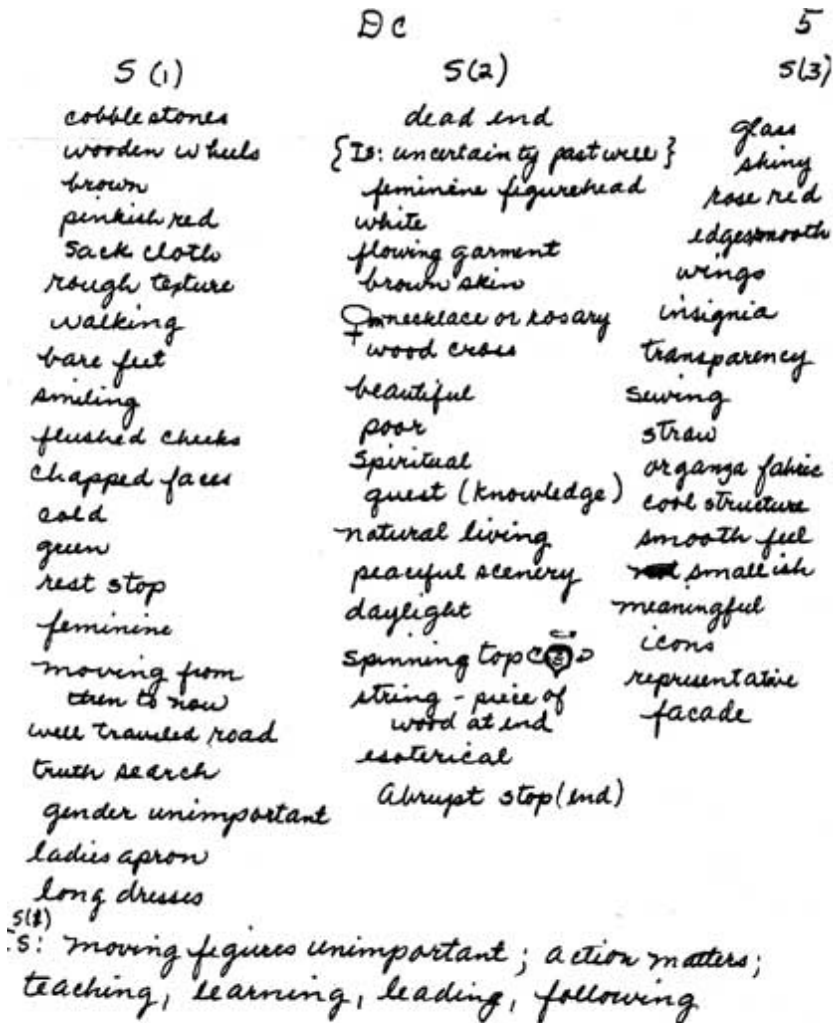 DC 5
S(1)
cobblestones
wooden wheels
brown
pinkish red
sack cloth
rough texture
walking
bare feet
smiling
flushed cheeks
chapped faces
cold
green
rest stop
feminine
moving from
then to now
well traveled road
truth search
gender unimportant
ladies apron
long dresses
S(2)
dead end
{IS: uncertainty past well}
feminine figurehead
white
flowing garment
brown skin
necklace or rosary
wood cross
beautiful
poor
spiritual
quest (knowledge)
natural living
peaceful scenery
daylight
spinning top
string - piece of
wood at end
esoterical
Abrupt stop (end)
S(3)
glass
shiny
rose red
edges smooth
wings
insignia
transparency
sewing
straw
organza fabric
cool structure
smooth feel
smallish
meaningful
icons
representative
facade
S: moving figures unimportant; action matters;
teaching, learning, leading, following